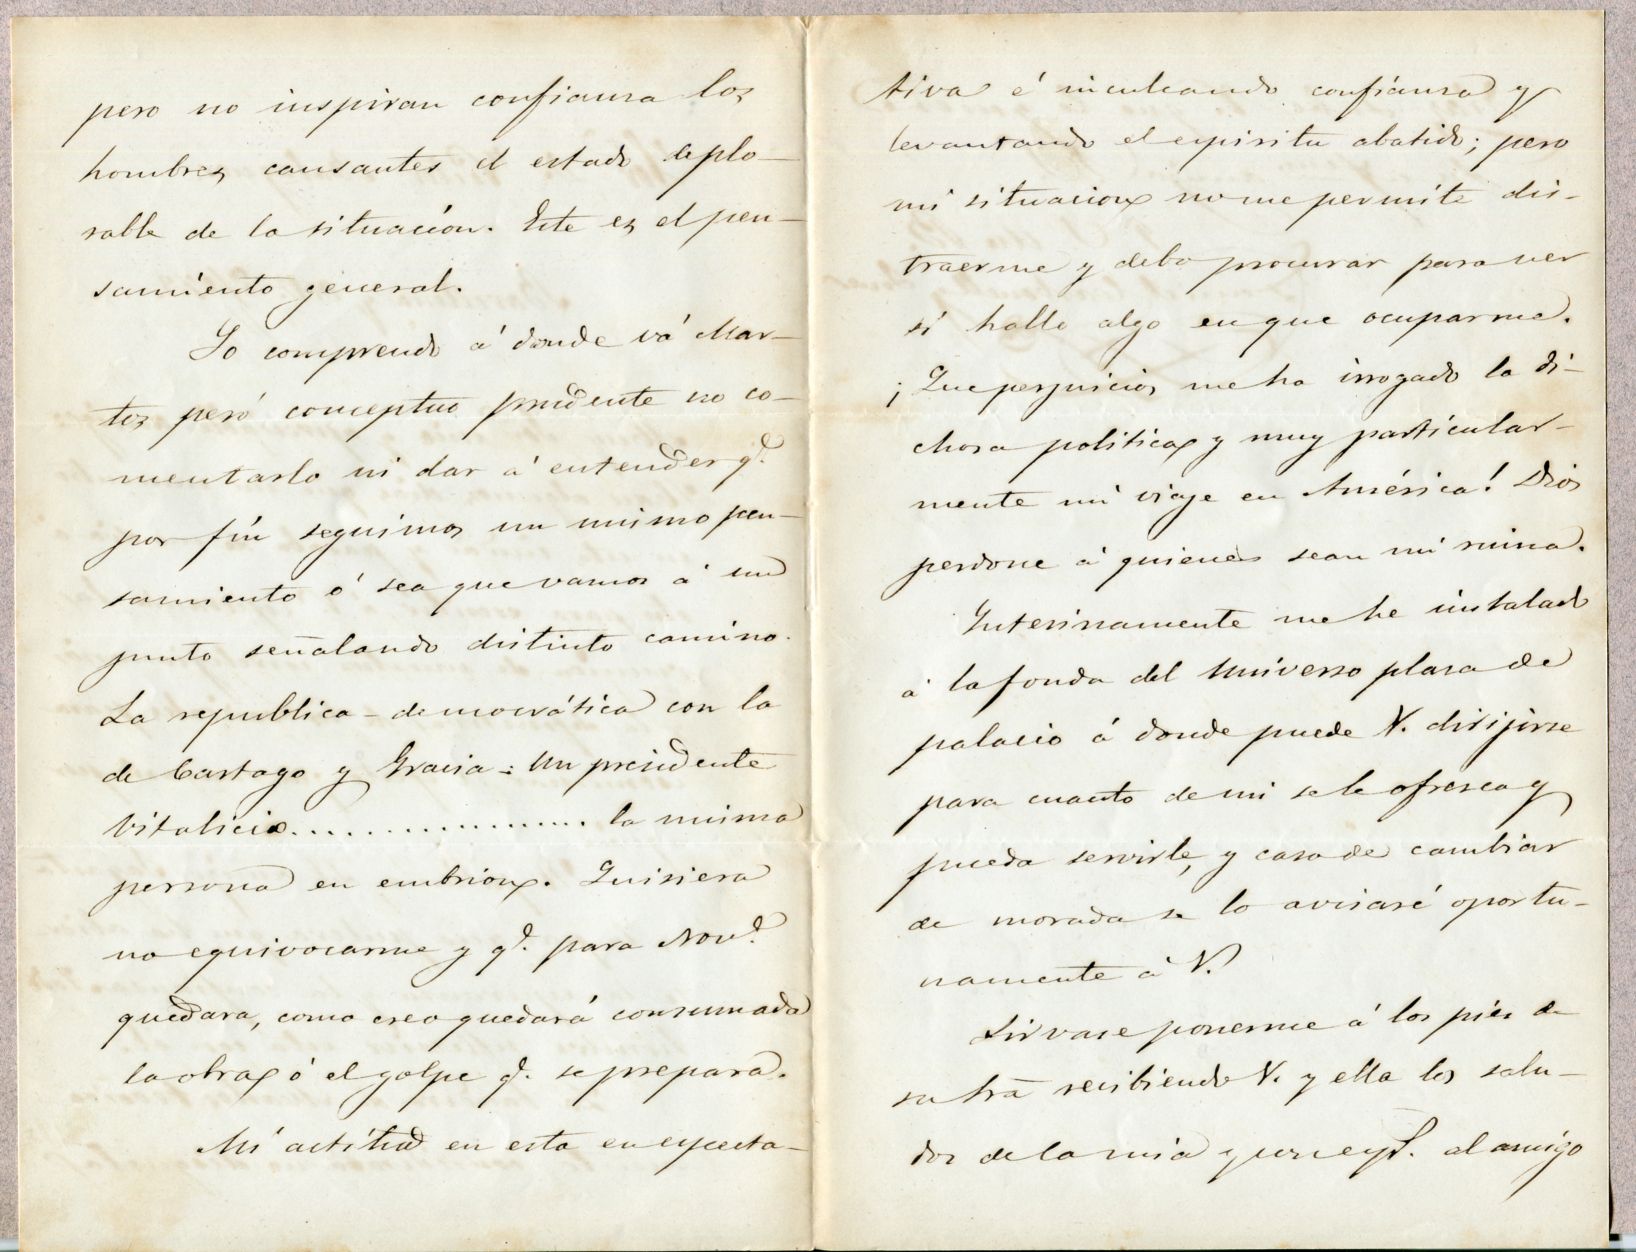 pero no inspiran confianza los
hombres causantes del estado deplo-
rable de la situación. Este es el pen-
samiento general.
Yo comprendo á donde vá Mar-
tos peró conceptuo prudente no co-
mentarlo ni dar á entender q.e
por fin seguimos un mismo pen-
samiento ó sea que vamos á un
punto señalando distinto camino.
La republica-democrática con la
de Cartago y Grecia: Un presidente
Vitalicio................... la misma
persona en embrion. Quisiera
no equivocarme y q.e para Nov.e
quedara, como creo quedará consumada
la obra ó el golpe q.e se prepara.
Mi actitud en esta en especta-
tiva é inculcando confianza y
levantando el espiritu abatido; pero
mi situacion no me permite dis-
traerme y debo procurar para ver
si hallo algo en que ocuparme.
¡Que perjuicios me ha irrogado la di-
chosa politica y muy particular-
mente mi viaje en América! Dios
perdone á quienes sean mi ruina.
Interinamente me he instalado
á la fonda del Universo plaza de
palacio á donde puede V. dirijirse
para cuanto de mi se le ofresca y
pueda servirle, y caso de cambiar
de morada se lo avisaré oportu-
namente á V.
Sirvase ponerme á los pies de
su Sra recibiendo V. y ella los salu-
dos de la mia y al amigo